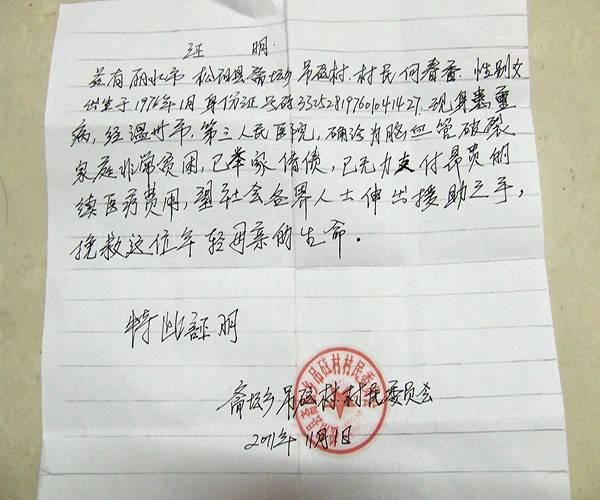 证 明
兹有丽水市 松阳县斋坛乡吊砝村.村民何春香 性别女
出生于1976年1月 身份证号码 332528197601041427. 现身患重
病,经温州市.第三人民医院,确诊为脑血管破裂
家庭非常贫困,已举家借债,已无力支付昂贵的
续医疗费用,望社会各界人士伸出援助之手,
挽救这位年轻母亲的生命。
特此證明
斋坛乡吊砝村.村民委员会
2011年11月1日